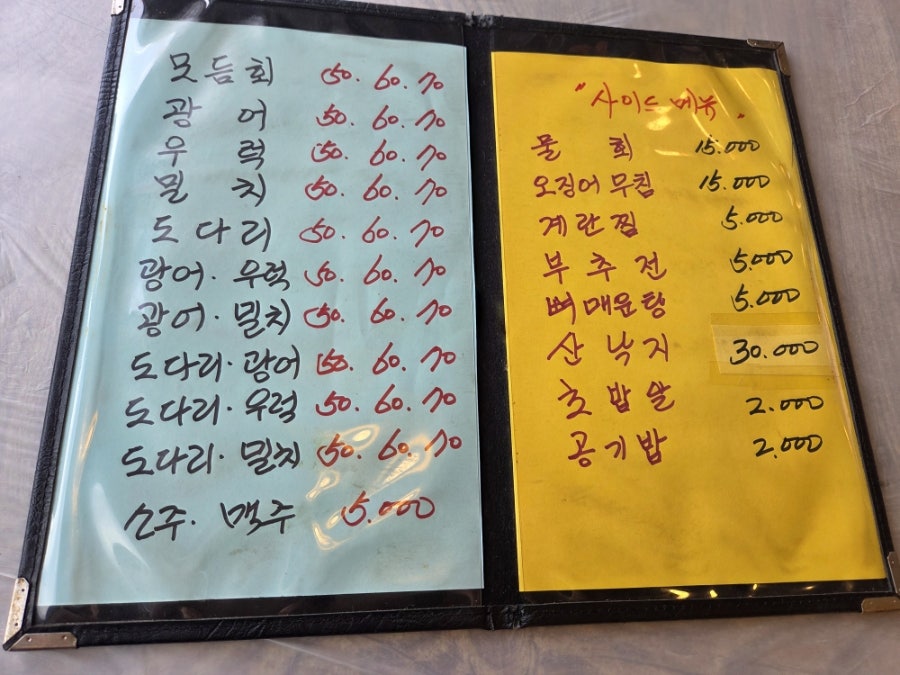 모듬회 50. 60. 70
광어 50. 60. 70
우럭 50. 60. 70
밀치 50. 60. 70
도다리 50. 60. 70
광어·우럭 50. 60. 70
광어·밀치 50. 60. 70
도다리·광어 50. 60. 70
도다리·우럭 50. 60. 70
도다리·밀치 50. 60. 70
소주·맥주 5.000
"사이드메뉴"
물회 15.000
오징어무침 15.000
계란찜 5.000
부추전 5.000
뼈매운탕 5.000
산낙지 30.000
초밥알 2.000
공기밥 2.000